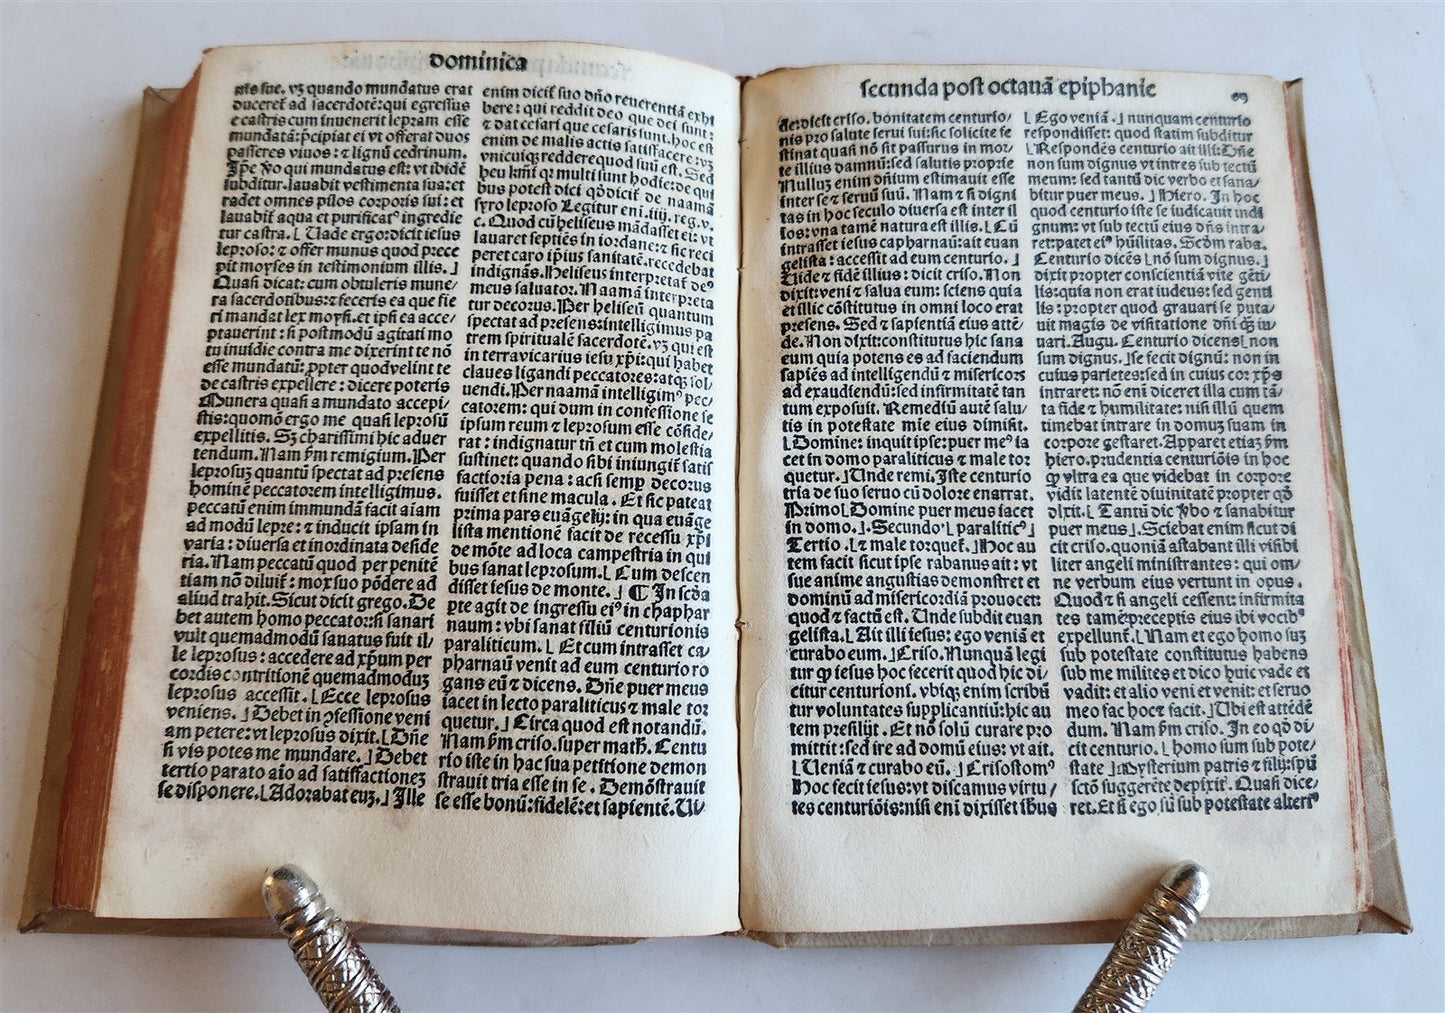 dominica
ale sue. vȝ quando mundatus erat
duceret̄ ad sacerdotē: qui egressus
e castris cum inuenerit lepram esse
mundatā: p̄cipiat ei vt offerat duos
passeres viuos: ⁊ lignū cedrinum.
Ip̄e v̊o qui mundatus est: vt ibidē
subditur. lauabit vestimenta sua: et
radet omnes pilos corporis sui: et
lauabit̄ aqua et purificat⁹ ingredie
tur castra. [ Uade ergo: dicit iesus
leproso: ⁊ offer munus quod prece
pit moyses in testimonium illis. ]
Quasi dicat: cum obtuleris mune/
ra sacerdotibus: ⁊ feceris ea que fie
ri mandat lex moysi. et ipsi ea acce/
ptauerint: si postmodū agitati mo
tu inuidie contra me dixerint te nō
esse mundatū: ꝓpter quod velint te
de castris expellere: dicere poteris
Munera quasi a mundato accepi/
stis: quomō ergo me quasi leprosū
expellitis. Sȝ charissimi hic aduer
tendum. Nam ẜm remigium. Per
leprosuȝ quantū spectat ad presens
hominē peccatorem intelligimus.
peccatū enim immundā facit aīam
ad modū lepre: ⁊ inducit ipsam in
varia: diuersa et inordinata deside
ria. Nam peccatū quod per penitē
tiam nō diluit̄: mox suo pōdere ad
aliud trahit. Sicut dicit grego. De
bet autem homo peccator: si sanari
vult quemadmodū sanatus fuit il/
le leprosus: accedere ad xp̄um per
cordis contritionē quemadmoduȝ
leprosus accessit. [ Ecce leprosus
veniens. ] Debet in ꝯfessione veni
am petere: vt leprosus dixit. [ Dn̄e
si vis potes me mundare. ] Debet
tertio parato aīo ad satisfactioneȝ
se disponere. [ Adorabat euȝ. ] Ille
enim dicit̄ suo dn̄o reuerentiā exhi
bere: qui reddit deo que dei sunt:
⁊ dat cesari que cesaris sunt. hoc est
enim de malis actis satisfacere: vȝ
vnicuiqȝ reddere quod suū est. Sed
heu km̄i qr multi sunt hodie: de qui
bus potest dici qd̄ dicit̄ de naamā
syro leproso Legitur eni. iiij. reg. v.
c. Quod cū heliseus mādasset ei: vt
lauaret septiēs in iordane: ⁊ sic reci
peret caro ipsius sanitatē. recedebat
indignās. Heliseus interpretat̄ de⁹
meus saluator. Naamā interpreta
tur decorus. Per heliseū quantum
spectat ad presens: intelligimus pa
trem spiritualē sacerdotē. vȝ qui est
in terra vicarius iesu xp̄i: qui habet
claues ligandi peccatores: atqȝ sol/
uendi. Per naamā intelligim⁹ pec/
catorem: qui dum in confessione se
ipsum reum ⁊ leprosum esse cōfide/
rat: indignatur tn̄ et cum molestia
sustinet: quando sibi iniungit̄ satis
factioria pena: ac si semp decorus
fuisset et sine macula. Et sic pateat
prima pars euāgelij: in qua euāge
lista mentionē facit de recessu xp̄i
de mōte ad loca campestria in qui
bus sanat leprosum. [ Cum descen
disset iesus de monte. ] ¶ In scd̄a
ꝑte agit de ingressu ei⁹ in chaphar
naum: vbi sanat filiū centurionis
paraliticum. [ Et cum intrasset ca/
pharnaū venit ad eum centurio ro
gans eū ⁊ dicens. Dn̄e puer meus
iacet in lecto paraliticus ⁊ male tor
quetur. ] Circa quod est notandū.
Nam ẜm criso. super math. Centu
rio iste in hac sua petitione demon
strauit tria esse in se. Demōstrauit
se esse bonū: fidelē: et sapientē. Ui/
secunda post octauā epiphanie
de: dicit criso. bonitatem centurio/
nis pro salute serui sui: sic solicite fe
stinat quasi nō sit passurus in mor/
te illius damnū: sed salutis proprie
Nulluȝ enim dn̄ium estimauit esse
inter se ⁊ seruū suū. Nam ⁊ si digni
tas in hoc seculo diuersa est inter il
los: vna tamē natura est illis. [ Cū
intrasset iesus capharnaū: ait euan
gelista: accessit ad eum centurio. ]
Uide ⁊ fidē illius: dicit criso. Non
dixit: veni ⁊ salua eum: sciens quia
et illic cōstitutus in omni loco erat
presens. Sed ⁊ sapientiā eius attē/
de. Non dixit: constitutus hic sana
eum quia potens es ad faciendum
sapiēs ad intelligendū ⁊ misericors
ad exaudiendū: sed infirmitatē tan
tum exposuit. Remediū autē salu/
tis in potestate mie eius dimisit.
[ Domine: inquit ipse: puer me⁹ ia
cet in domo paraliticus ⁊ male tor
quetur. ] Unde remi. Iste centurio
tria de suo seruo cū dolore enarrat.
Primo [ Domine puer meus iacet
in domo. ]. Secundo [ paralitic⁹ ]
Tertio. [ ⁊ male torquet̄. ] Hoc au
tem facit sicut ipse rabanus ait: vt
sue anime angustias demonstret et
dominū ad misericordiā prouocet:
quod ⁊ factū est. Unde subdit euan
gelista. [ Ait illi iesus: ego veniā et
curabo eum. ] Criso. Nunquā legi
tur qp iesus hoc fecerit quod hic di/
citur centurioni. vbiqȝ enim scribū
tur voluntates supplicantiū: hic au
tem presilijt. Et nō solū curare pro
mittit: sed ire ad domū eius: vt ait.
[ Ueniā ⁊ curabo eū. ] Crisostom⁹
Hoc fecit iesus: vt discamus virtu/
tes centuriōis: nisi eni dixisset ibus
[ Ego veniā. ] nunquam centurio
respondisset: quod statim subditur
[ Respondēs centurio ait illi: Dn̄e
non sum dignus vt intres sub tectū
meum: sed tantū dic verbo et sana/
bitur puer meus. ] Hiero. In hoc
quod centurio iste se iudicauit indi
gnum: vt sub tectū eius dn̄s intra/
ret: patet ei⁹ hūilitas. Scd̄m raba.
Centurio dicēs [ nō sum dignus. ]
dixit propter conscientiā vite gēti/
lis: quia non erat iudeus: sed genti
lis: propter quod grauari se puta/
uit magis de visitatione dn̄i q̄ȝ iu/
uari. Augu. Centurio dicens [ non
sum dignus. ] se fecit dignū: non in
cuius parietes: sed in cuius cor xp̄s
intraret: nō eni diceret illa cum tā/
ta fide ⁊ humilitate: nisi illū quem
timebat intrare in domuȝ suam in
corpore gestaret. Apparet etiaȝ ẜm
hiero. prudentia centuriōis in hoc
qp vltra ea que videbat in corpore
vidit latentē diuinitatē propter qd̄
dixit. [ Tantū dic v̊bo ⁊ sanabitur
puer meus ] Sciebat enim sicut di
cit criso. quoniā astabant illi visibi
liter angeli ministrantes: qui om/
ne verbum eius vertunt in opus.
Quod ⁊ si angeli cessent: infirmita
tes tamē preceptis eius ibi vocib⁹
expellunt̄. [ Nam et ego homo suȝ
sub potestate constitutus habens
sub me milites et dico huic vade et
vadit: et alio veni et venit: et seruo
meo fac hoc ⁊ facit. ] Ubi est attēdē
dum. Nam ẜm criso. In eo qd̄ di/
cit centurio. [ homo sum sub pote/
state ] mysterium patris ⁊ filij: spū
sctō suggerēte depixit. Quasi dice/
ret. Et si ego sū sub potestate alteri⁹